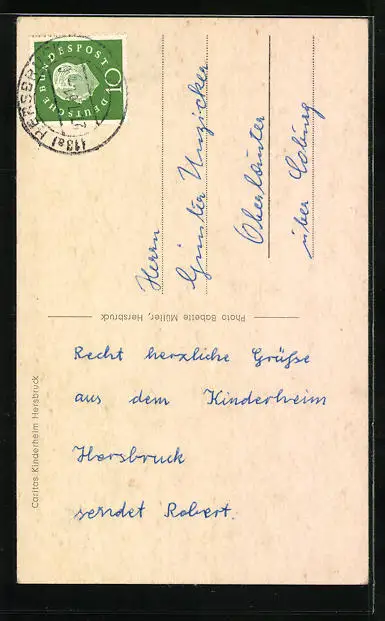 DEUTSCHE BUNDESPOST
10
(13a) HERSBR
Herrn
Günter Unzicker
Oberlauter
über Coburg
Photo Babette Müller, Hersbruck
Caritas Kinderheim Hersbruck
Recht herzliche Grüße
aus dem Kinderheim
Hersbruck
sendet Robert.